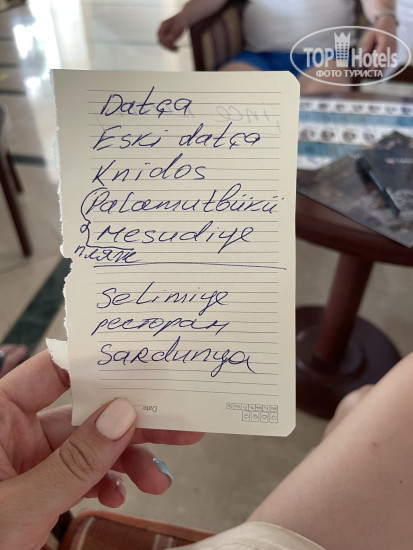 TOPHotels
ФОТО ТУРИСТА
Datça
Eski datça
Knidos
Palamutbükü
2 Mesudiye
пляж
Selimiye
ресторан
Sardunya
Date